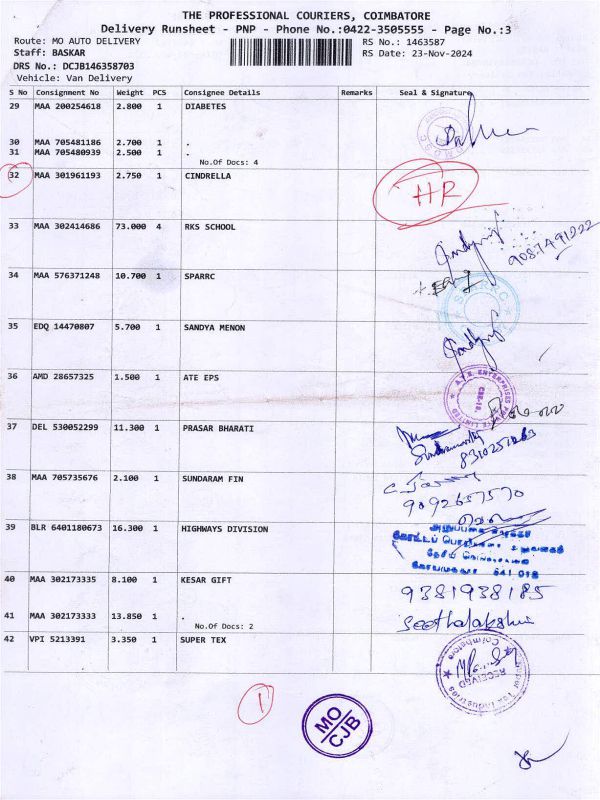 THE PROFESSIONAL COURIERS, COIMBATORE
Delivery Runsheet - PNP - Phone No.:0422-3505555 - Page No.:3
Route: MO AUTO DELIVERY RS No.: 1463587
Staff: BASKAR RS Date: 23-Nov-2024
DRS No.: DCJB146358703
Vehicle: Van Delivery
S No Consignment No Weight PCS Consignee Details Remarks Seal & Signature
29 MAA 200254618 2.800 1 DIABETES
30 MAA 705481186 2.700 1 .
31 MAA 705480939 2.500 1 .
No.Of Docs: 4
32 MAA 301961193 2.750 1 CINDRELLA HR
33 MAA 302414686 73.000 4 RKS SCHOOL
34 MAA 576371248 10.700 1 SPARRC
SPARRC
35 EDQ 14470807 5.700 1 SANDYA MENON
36 AMD 28657325 1.500 1 ATE EPS
A.T.E. ENTERPRISES PRIVATE LIMITED
CBE-18.
37 DEL 530052299 11.300 1 PRASAR BHARATI
38 MAA 705735676 2.100 1 SUNDARAM FIN
9092657570
39 BLR 6401180673 16.300 1 HIGHWAYS DIVISION
641 018
40 MAA 302173335 8.100 1 KESAR GIFT
9381938185
41 MAA 302173333 13.850 1 .
Seethalakshmi
No.Of Docs: 2
42 VPI 5213391 3.350 1 SUPER TEX
Coimbatore
RECEIVED
1
MO
CJB